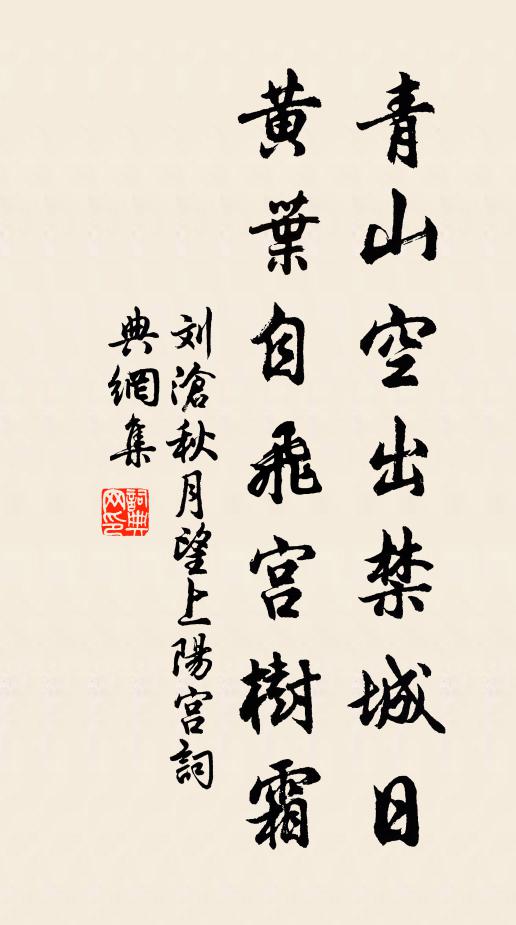 青山空出禁城日
黄葉自飛宫樹霜
刘滄秋月望上陽宫詞
典網集
詞典
网印